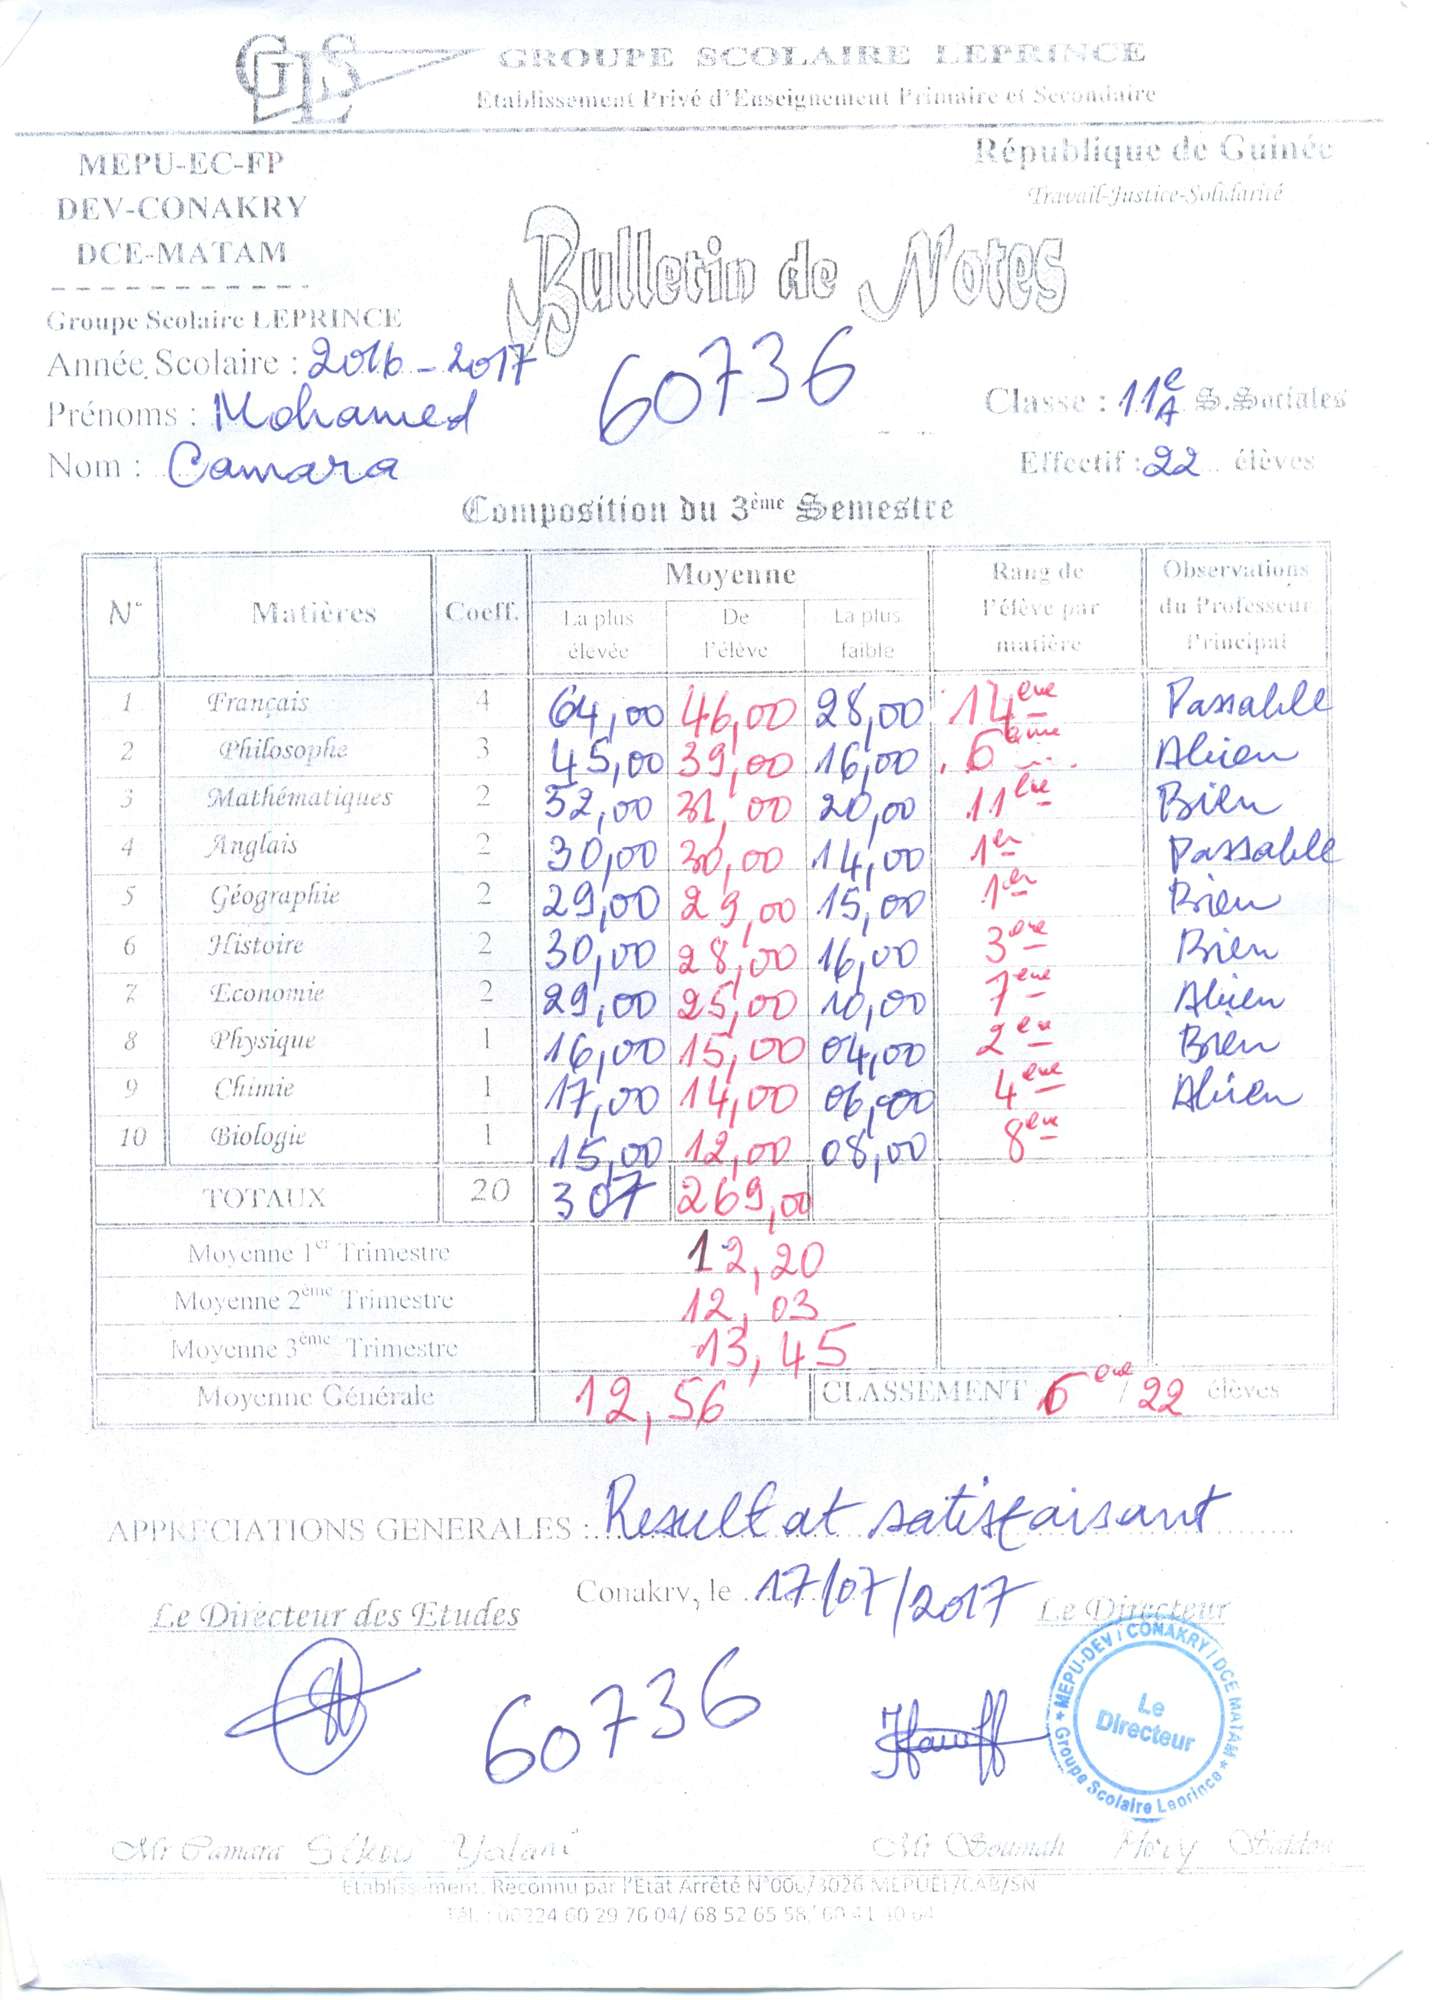 GLS GROUPE SCOLAIRE LEPRINCE
Etablissement Privé d'Enseignement Primaire et Secondaire
MEPU-EC-FP
République de Guinée
DEV-CONAKRY
Travail-Justice-Solidarité
DCE-MATAM
Bulletin de Notes
Groupe Scolaire LEPRINCE
Année Scolaire : 2016-2017
60736
Prénoms : Mohamed
Classe : 11e A S.Sociales
Nom : Camara
Effectif : 22 élèves
Composition du 3ème Semestre
N° Matières Coeff. Moyenne Rang de l'élève par matière Observations du Professeur Principal
La plus élevée De l'élève La plus faible
1 Français 4 64,00 46,00 28,00 14ème Passable
2 Philosophe 3 45,00 39,00 16,00 6ème Abien
3 Mathématiques 2 32,00 31,00 20,00 11ème Bien
4 Anglais 2 30,00 30,00 14,00 1er Passable
5 Géographie 2 29,00 29,00 15,00 1er Bien
6 Histoire 2 30,00 28,00 16,00 3ème Bien
7 Economie 2 29,00 25,00 10,00 7ème Abien
8 Physique 1 16,00 15,00 04,00 2em Bien
9 Chimie 1 17,00 14,00 06,00 4ème Abien
10 Biologie 1 15,00 12,00 08,00 8em
TOTAUX 20 307 269,00
Moyenne 1er Trimestre 12,20
Moyenne 2ème Trimestre 12,03
Moyenne 3ème Trimestre 13,45
Moyenne Générale 12,56 CLASSEMENT 6ème / 22 élèves
APPRECIATIONS GENERALES : Resultat satisfaisant
Conakry, le 17/07/2017
Le Directeur des Etudes
Le Directeur
60736
MEPU-DEV / CONAKRY / DCE MATAM
Le Directeur
Groupe Scolaire Leprince
Mr Camara Sékou
Mr Soumah
Etablissement Reconnu par l'Etat Arrêté N°000/3026 MEPUEI/CAB/SN
Tél. : 00224 60 29 76 04/ 68 52 65 58/